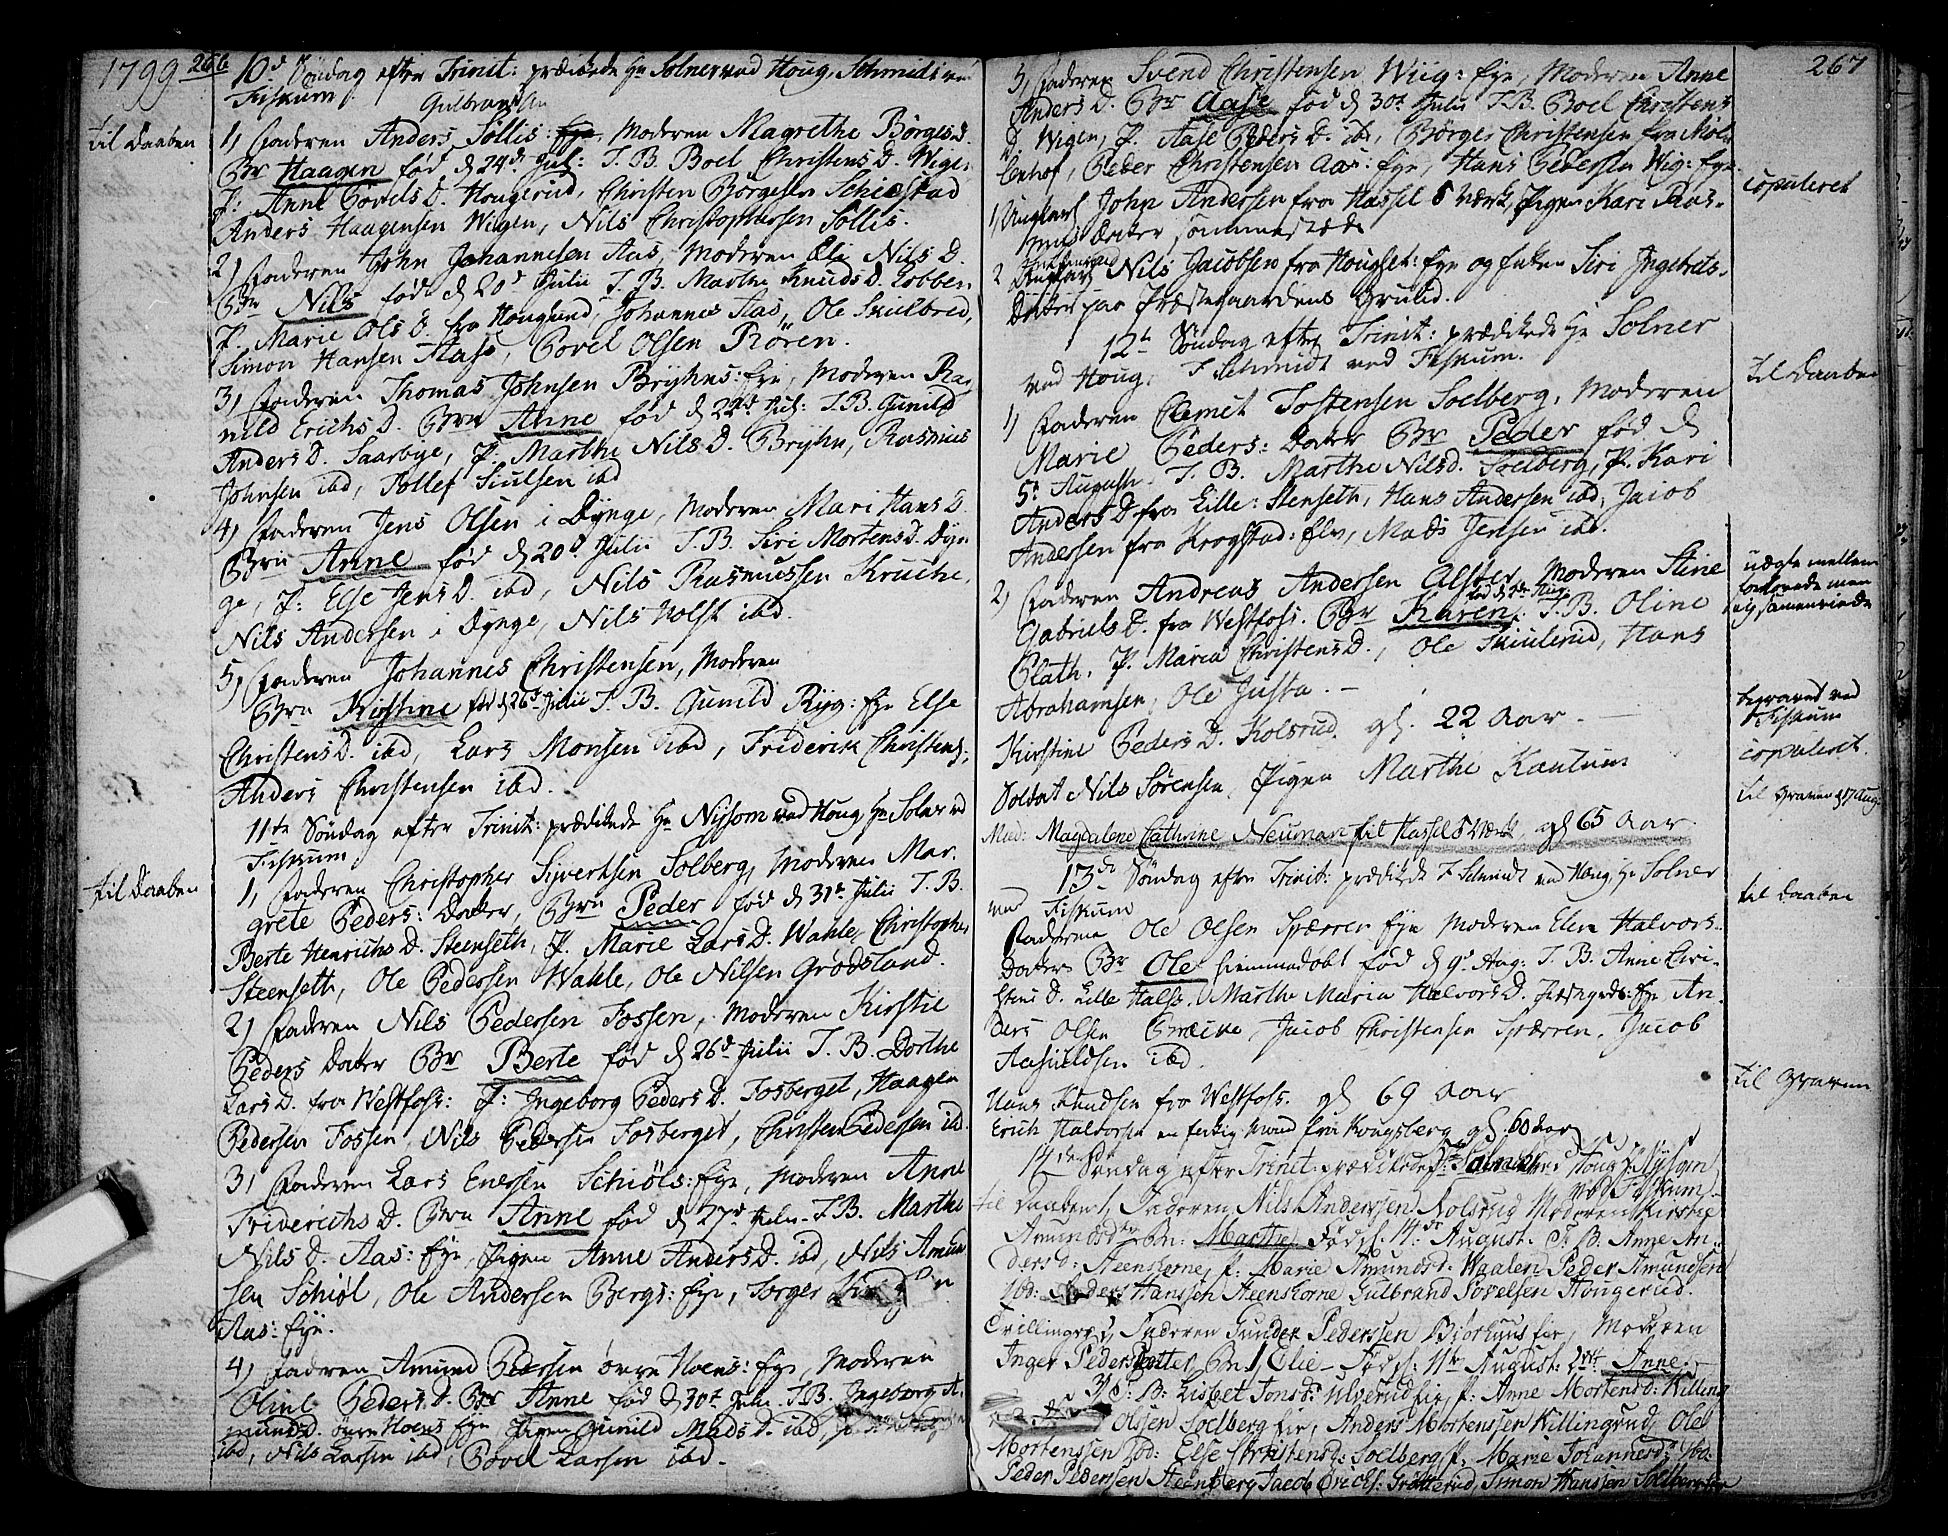 1799 266
10d Söndag efter Trinit: prædikede Hr Solner ved Houg, Schmidt ved
Fiskum.
Gulbrandsen
til Daaben
1) Faderen Anders Sollis: Moderen Magrethe Börgesd.
Br Haagen fød d 24de Jul: T. B. Boel Christens D. Wige.
P: Anne Povels D. Hougerud, Christen Börgesen Schiestad
Anders Haagensen Wigen, Nils Christophersen Sollis.
2) Faderen John Johannesen Aas, Moderen Eli Nils D.
Brn Nils fød d 20d Julii T. B. Marthe Knuds D. Lobben
P. Marie Ols D. fra Hougsund, Johannes Aas, Ole Skulbred,
Simon Hansen Aase, Povel Olsen Rören.
3) Faderen Thomas Johnsen Bryhns: eje, Moderen Rag
nild Erichs D. Brn Anne fød d 22d Jul: T. B. Gunild
Anders D. Saarbye, P. Marthe Nils D. Bryhn, Rasmus
Johnsen ibd, Tollef Siulsen ibd
4) Faderen Jens Olsen i Dynge, Moderen Mari Hans D.
Brn Anne fød d 20d Julii T. B. Siri Mortens D. Dyn
ge, P: Else Jens D. ibd, Nils Rasmussen Kruche,
Nils Andersen i Dynge, Nils Holst ibd.
5) Faderen Johannes Christensen, Moderen
Brn Kirstine fød d 26d Julii T. B. Gunild Ryg: eje Else
Christens D. ibd, Lars Monsen ibd, Friderik Christens:
Anders Christensen ibd.
11te Söndag efter Trinit: prædikede Hr Nyssom ved Houg Hr Solner vd
Fiskum
til Daaben
1, Faderen Christopher Sivertsen Solberg, Moderen Mar.
grete Peders: Dater, Brn Peder fød d 31te Julii T. B.
Berte Henrichs D. Steenseth, P. Marie Lars D. Wahle, Christopher
Steenseth, Ole Pedersen Wahle, Ole Nilsen Grodsland.
2) Faderen Nils Pedersen Fossen, Moderen Kirstie
Peders Dater Br Berte fød d 26d Julii T. B. Dorthe
Lars D. fra Westfoss: P: Ingeborg Peders D. Fosberget, Haagen
Pedersen Fossen, Nils Pedersen Fosberget, Christen Pedersen ibd.
3) Faderen Lars Enersen Schiöls: Eye, Moderen Anne
Friderichs D. Brn Anne fød d 27d Julii T. B. Marthe
Nils D. Aas: Eye, Pigen Anne Anders D. ibd, Nils Amun
sen Schiöl, Ole Andersen Bergs: Eye, Torger
Aas: Eye.
4) Faderen Amund Pedersen övre Hoens: Eye, Moderen
Oline Peders D. Br Anne fød d 30te Julii T. B. Ingeborg A.
munds D. övre Hoens Eye Pigen Gunild Mads D. ibd,
ibd, Nils Larsen ibd, Povel Larsen ibd.
267
5, Faderen Svend Christensen Wiig: Eye, Moderen Anne
Anders D. Br Aase fød d 30te Julii T. B. Boel Christens
D. Wigen, P. Aase Peders D. ibd, Börger Christensen fra Möl
lenhof, Peder Christensen Aas: Eye, Hans Pedersen Wig: Eye.
copuleret
1, Ungkarl John Andersen fra Hassel s Værk, Pigen Kari Ras-
mus Dater sammestæds
2 Enkemand Nils Jacobsen fra Hougset: Eye og Enken Siri Ingebrets-
Dater paa Præstegaardens Grund.
12te Söndag efter Trinit: prædikede Hr Solner
ved Houg, F Schmidt ved Fiskum.
til Daaben
1) Faderen Clemet Tostensen Soelberg, Moderen
Marie Peders: Dater Br Peder fød d
5te August. T. B. Marthe Nilsd. Soelberg, P. Kari
Anders D fra Lille: Stenseth, Hans Andersen ibd, Jacob
Andersen fra Krogstad: Elv, Mads Jensen ibd.
uægte mellem
forlovede men
ej sammenviede
2) Faderen Andreas Andersen Alster, Moderen Stine
Gabriels D. fra Westfoss. Br Karen, T. B. Oline
Plath, P. Maria Christens D., Ole Skiulerud, Hans
Abrahamsen, Ole Justa.
begravet ved
Fiskum
Kirstine Peders D. Kolsrud. gl. 22 Aar.
copuleret.
Soldat Nils Sörensen, Pigen Marthe Kantum
til Graven d 17 Aug:
Mad: Magdalene Cathrine Neuman fra Hassel s Værk, gl 65 Aar.
13de Söndag efter Trinit: prædikede F Schmidt ved Houg, Hr Solner
ved Fiskum
til Daaben
Faderen Ole Olsen Sperren Eye Moderen Elen Halvors-
Dater Br Ole hiemmedøbt fød d 9d Aug: T. B. Anne Cri-
stens D. Lille Halss, Marthe Maria Halvors D. Præstegrds: Eye An-
ders Olsen Greive, Jacob Christensen Sperren, Jacob
Aasuldsen ibd.
til Graven
Hans Knudsen fra Westfoss. gl 69 Aar
Erich Halvorsen en fattig Mand fra Kongsberg gl. 60 Aar
14de Søndag efter Trinit: prædikede Hr: Solner ved Houg
ved Fiskum
til Daaben 1, Faderen Nils Anderssen Kolsrud Moderen Kirstie
Amundsdtr Brn: Marthe Fød d. 14de August. T. B. Anne An-
dersd: Steenskerne, P. Marie Amundsd: Waalen, Peder Amundsen
ibd: Anders Hanssen Steenskorne Gulbrand Povelsen Hougerud.
Tvillinger 2, Faderen Gunder Pederssen Biørhuus Eie, Moderen
Inger Pedersdatter, Brn: 1, Elie - Fød d: 11te August: 2det Anne
T: B: Lisbet Jonsd: Ulverud Eie, P. Anne Mortensd: Killing
Olsen Soelberg Eie, Anders Mortenssen Killingrud, Ole
Mortenssen ibd: Else Christensd: Soelberg P. Marie Johannesd: ibd:
Peder Pedersen Steenberg Jacob Erichs: Grøtterud, Simon Hanssen Solberg Eie